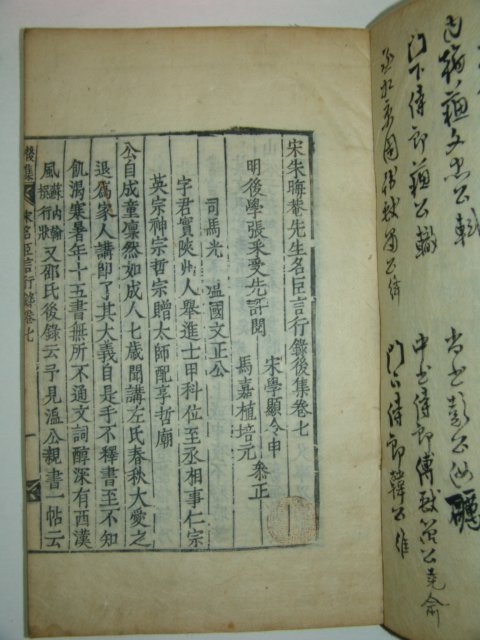 内翰蘇文忠公軾 尚书彭公汝礪
门下侍郎蘇公轍 中书侍郎傅獻簡公堯俞
丞相康國韓獻肅公絳 门下侍郎韓公維
宋朱晦菴先生名臣言行錄後集卷七
明後學張采受先評閱
宋學顯令申
馬嘉植培元 叅正
司馬光 溫國文正公
字君實陝州人舉進士甲科位至丞相事仁宗
英宗神宗哲宗贈太師配享哲廟
公自成童凛然如成人七歲聞講左氏春秋大愛之
退爲家人講即了其大義自是手不釋書至不知
飢渴寒暑年十五書無所不通文詞醇深有西漢
風蘇内翰撰行狀又邵氏後錄云予見溫公親書一帖云
後集 宋名臣言行錄卷七 一